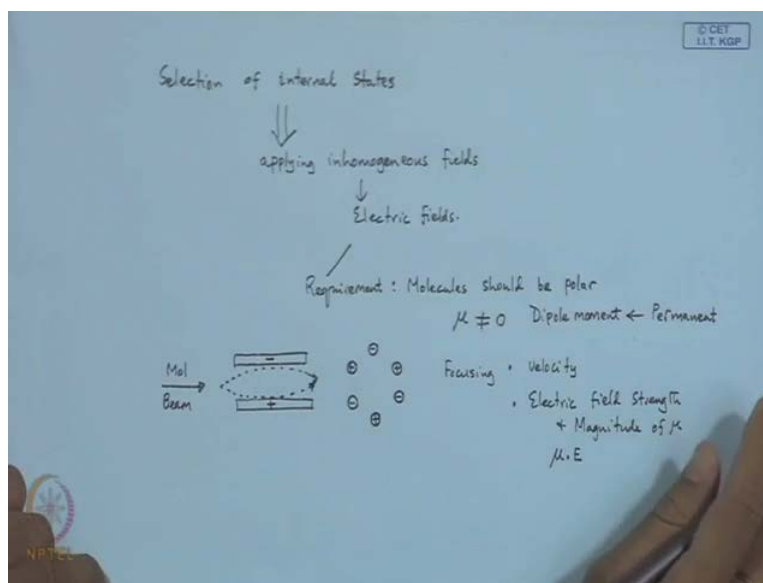 © CET
I.I.T. KGP
Selection of internal states
applying inhomogeneous fields
Electric fields.
Requirement : Molecules should be polar
μ ≠ 0 Dipole moment ← Permanent
Mol
Beam
-
+
⊖
⊕ ⊕
⊖ ⊖
⊕
Focusing • Velocity
• Electric field strength
+ Magnitude of μ
μ.E
NPTEL